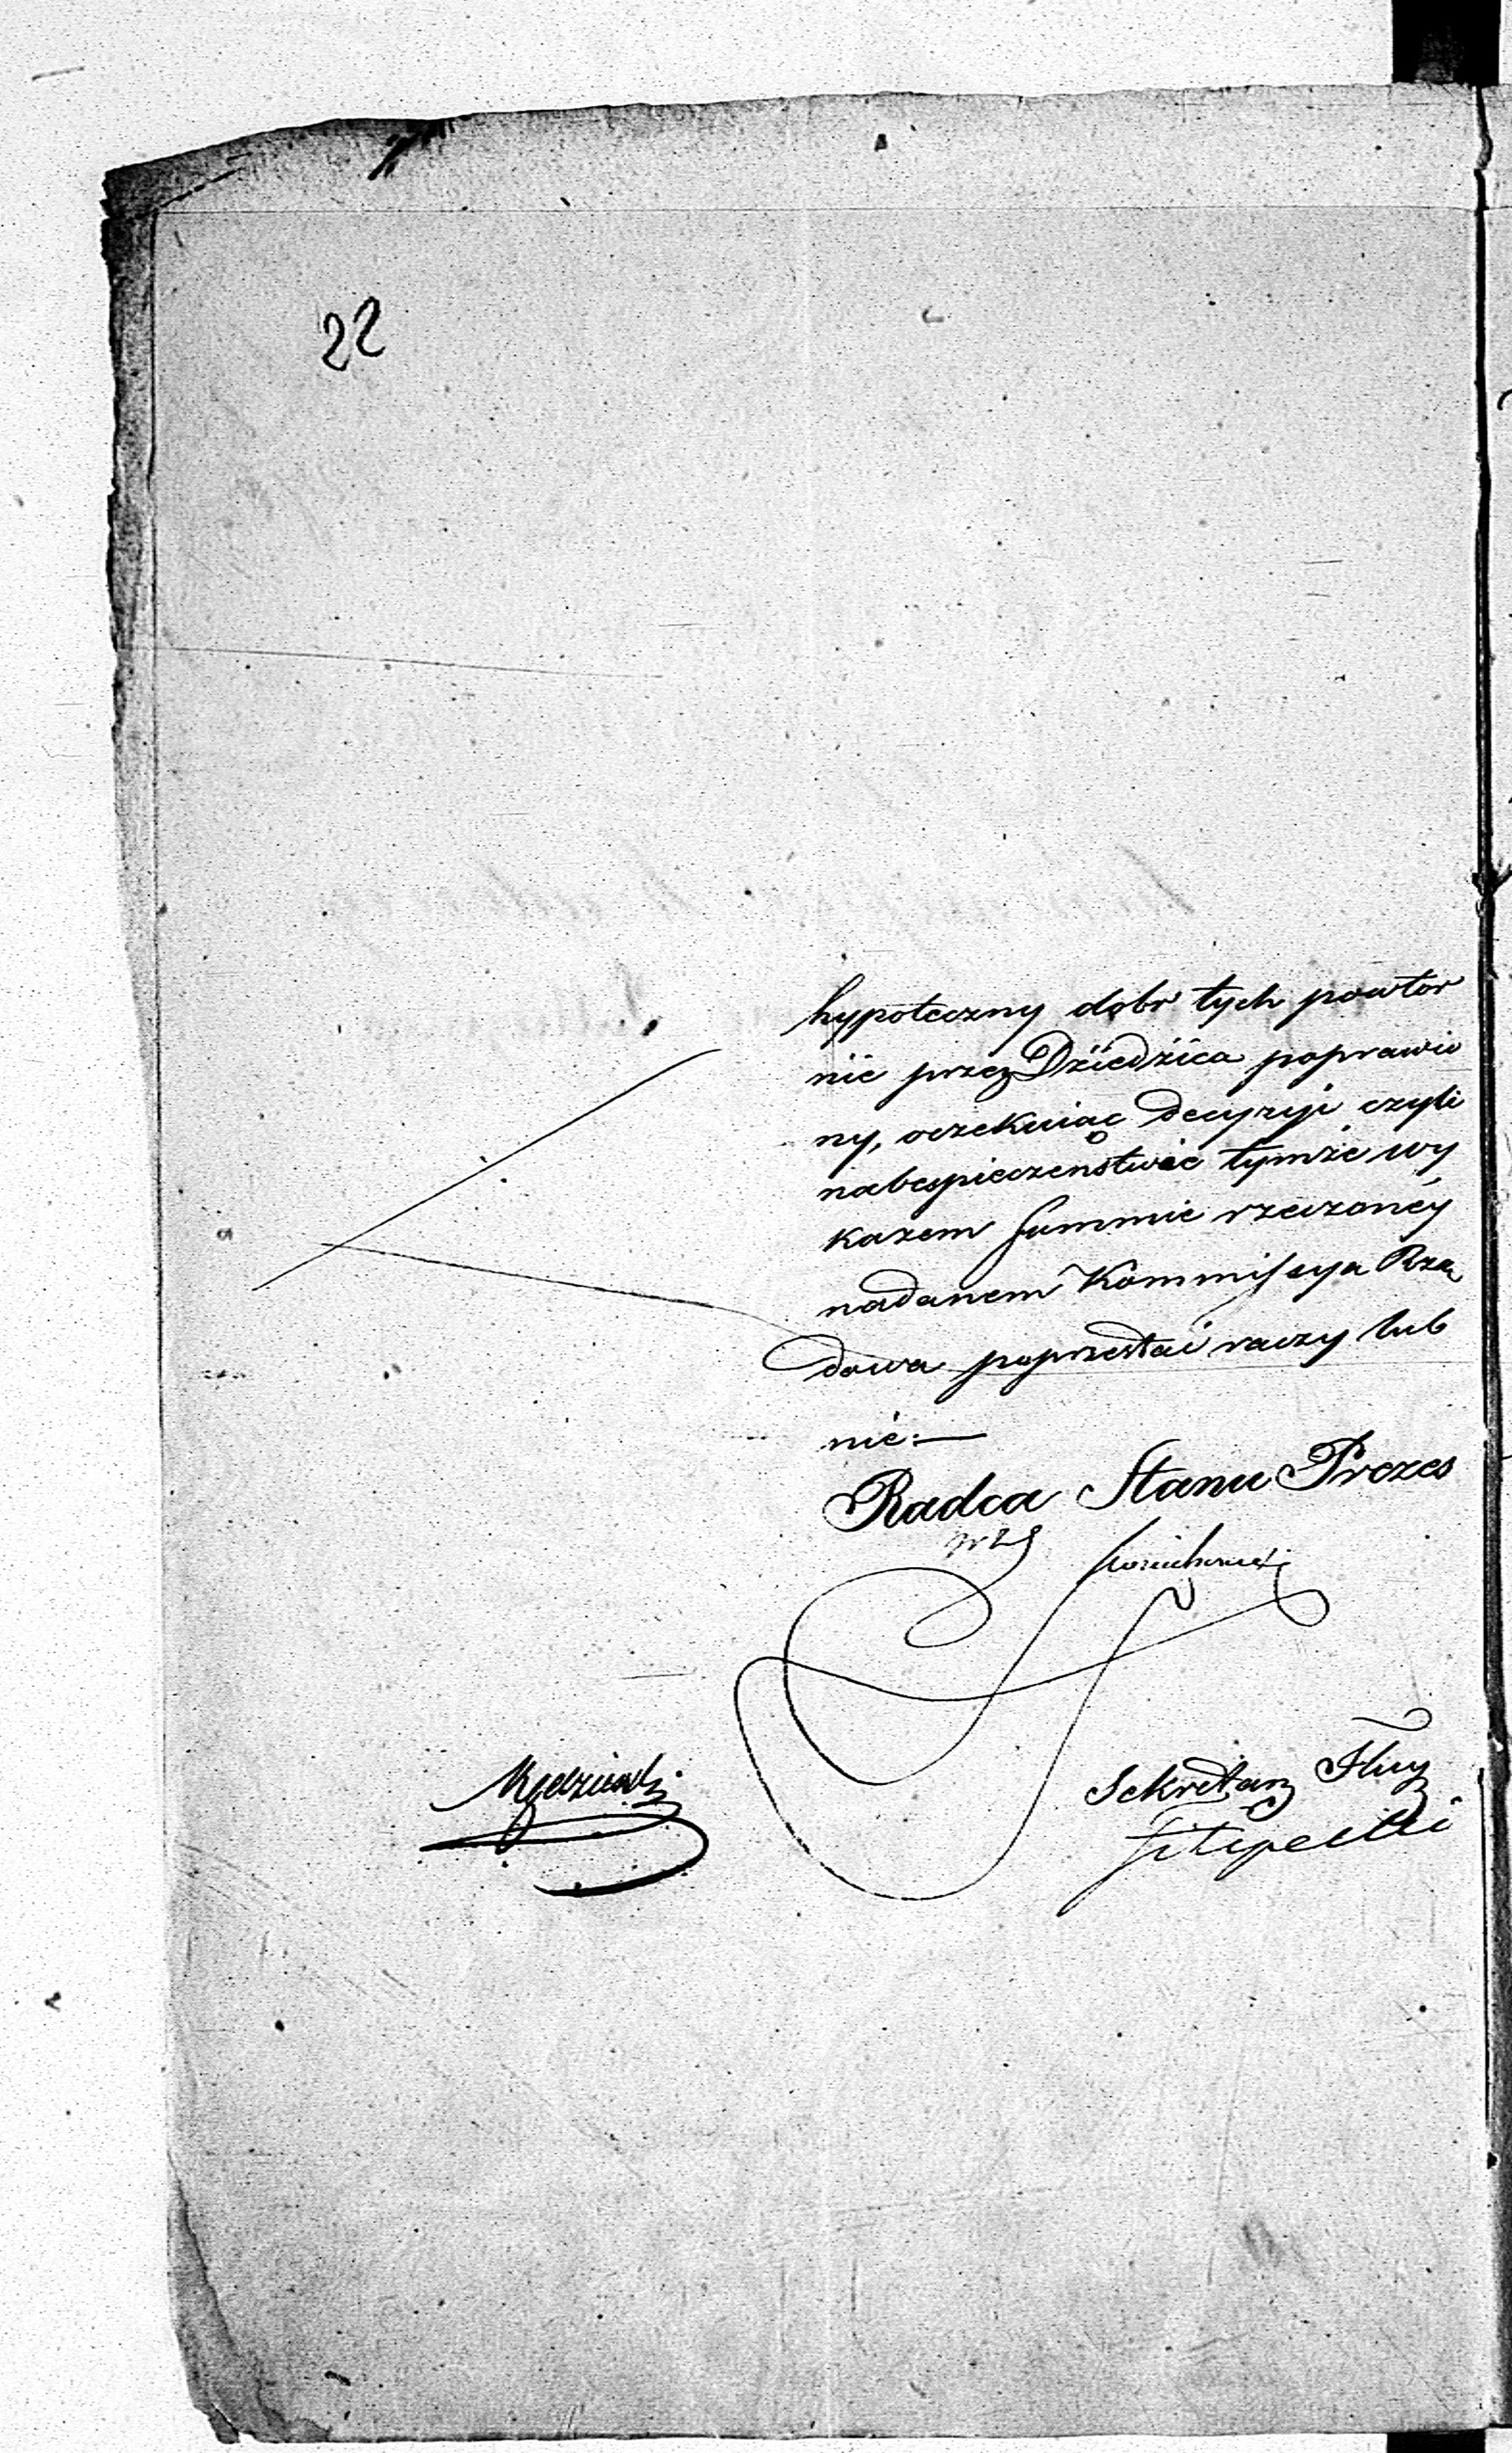 22
hypoteczny dobr tych powtor
nie przez Dziedzica poprawio
ny, oczekuiąc decyzyi czyli
nabespieczeństwie tymże wy
kazem summie rzeczoney
nadanem Kommissya Rzą
dowa poprzestać raczy lub
nie:—
Radca Stanu Prezes
Sekretarz Jlny
Filipecki